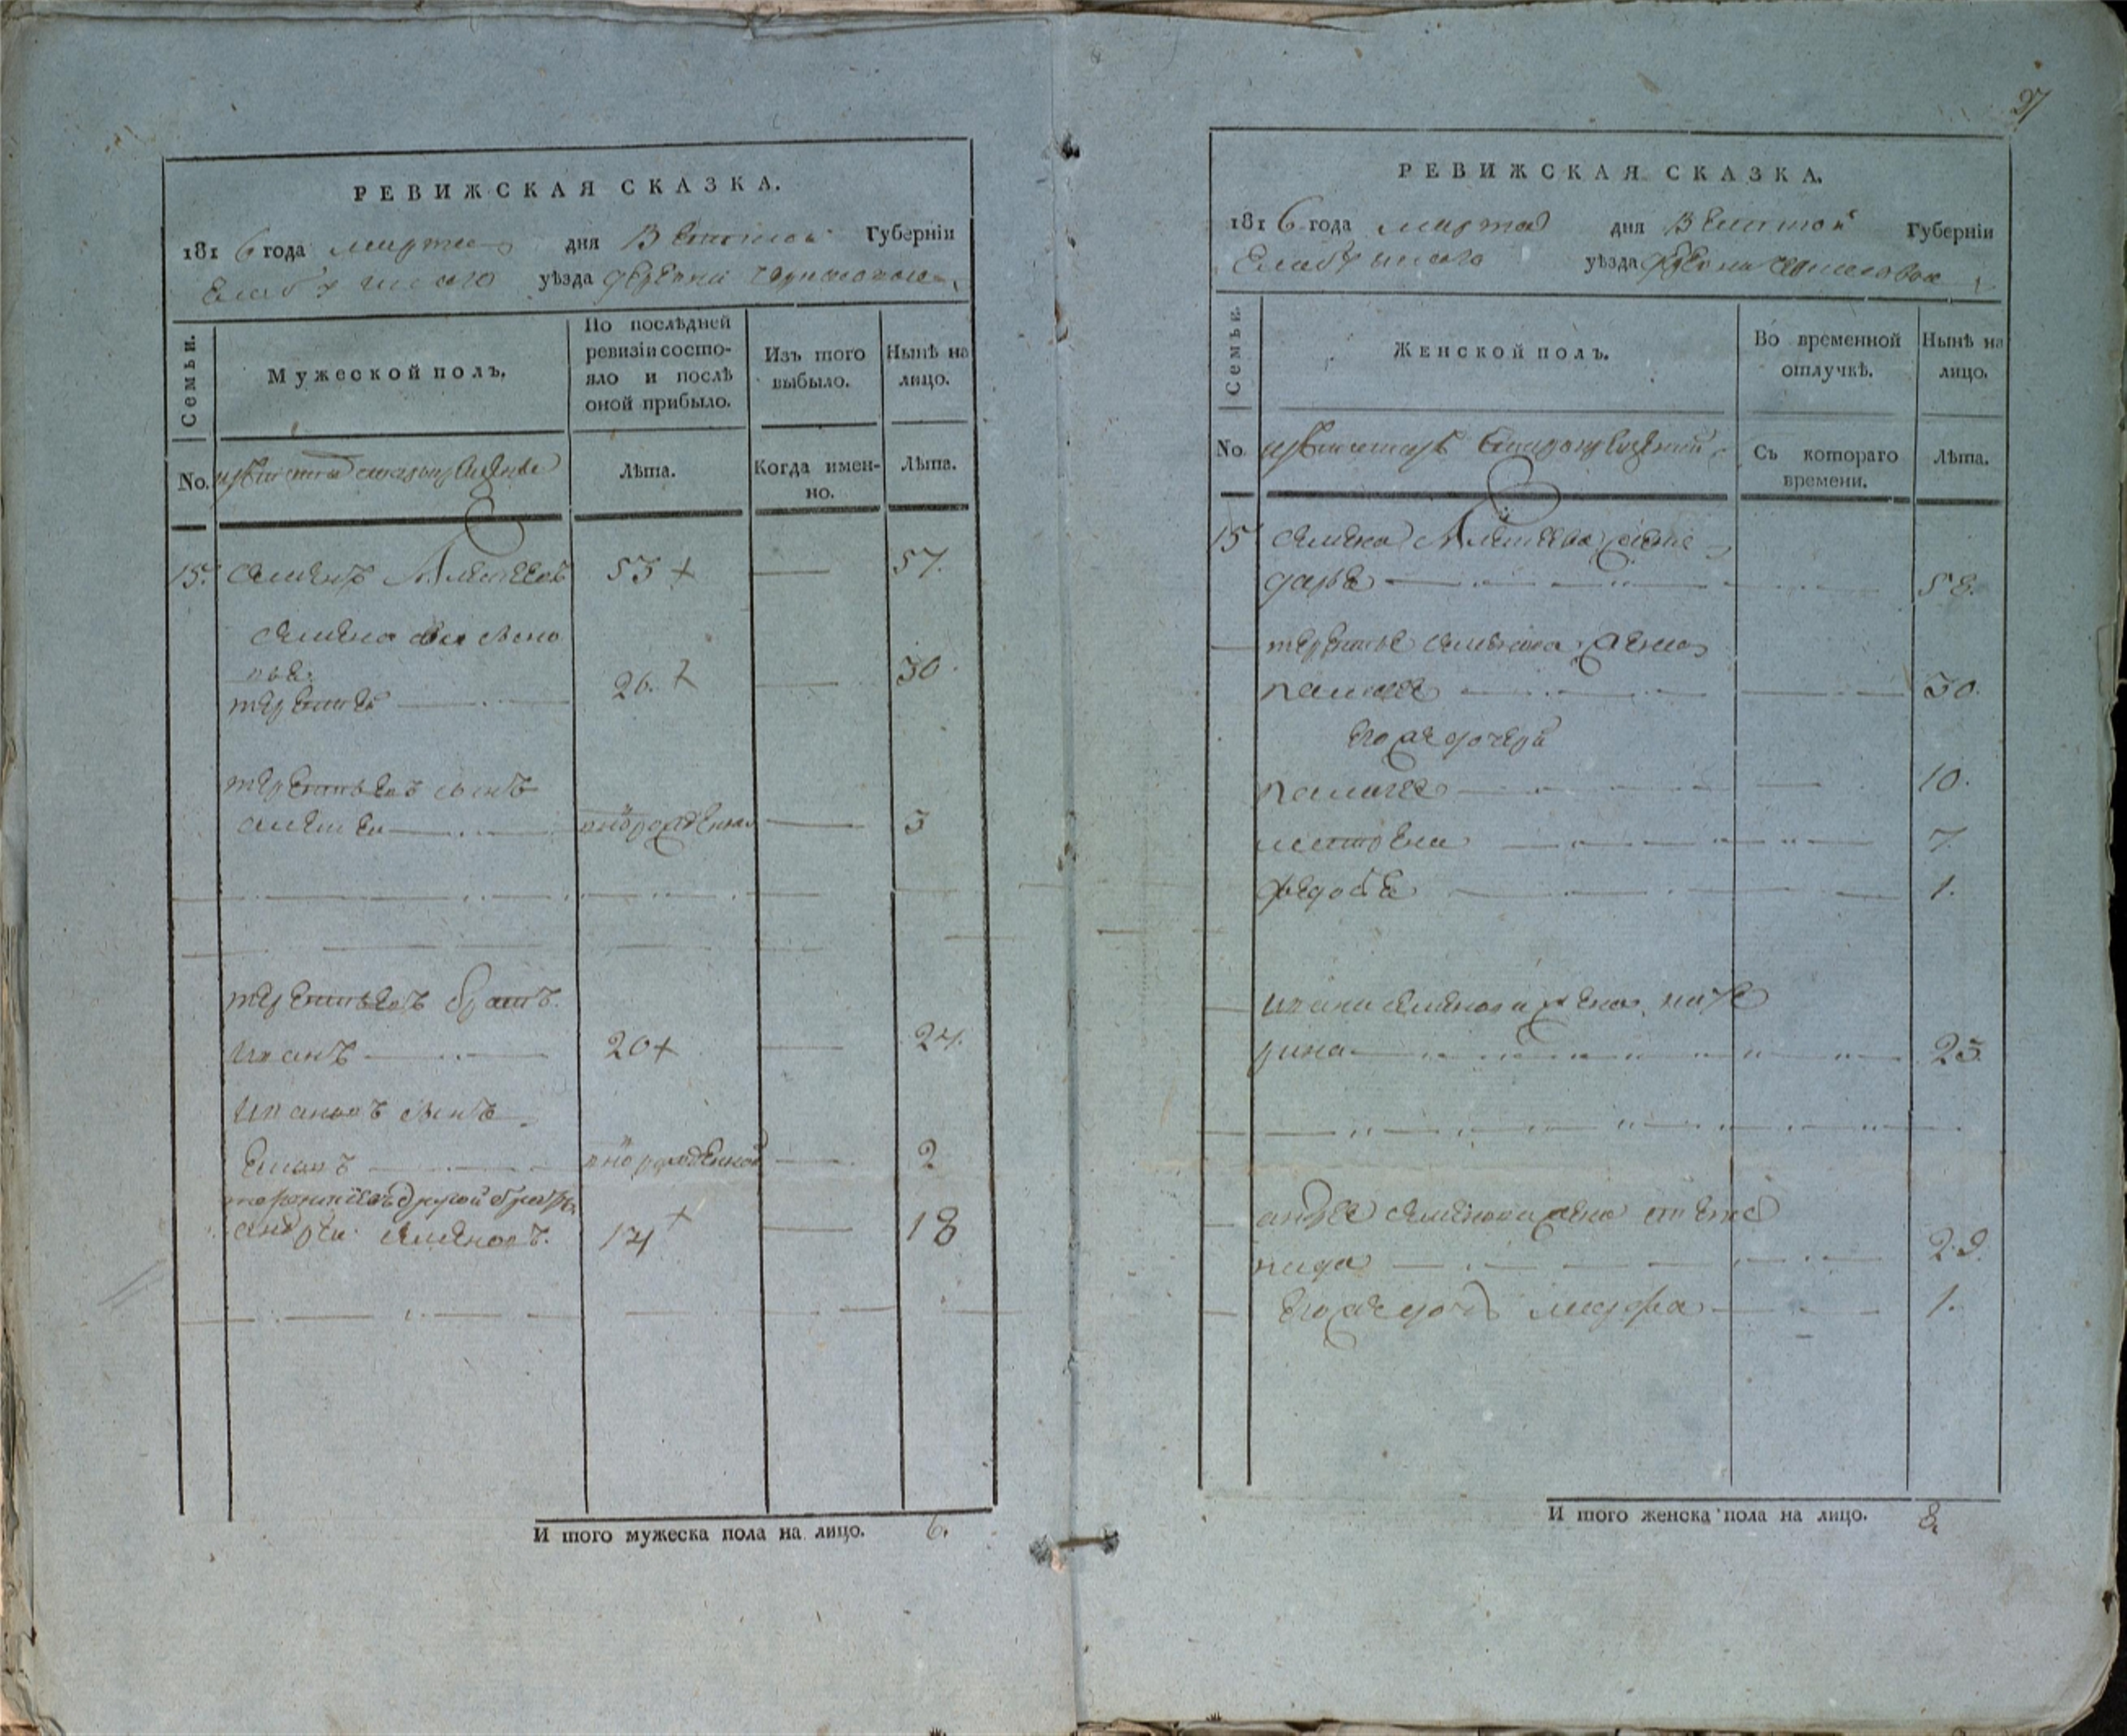 27
РЕВИЖСКАЯ СКАЗКА.
1816 года марта дня Вятской Губерніи
Елабужского уѣзда деревни
Семьи.
Мужеской полъ.
По послѣдней
ревизіи состо-
яло и послѣ
оной прибыло.
Изъ того
выбыло.
Нынѣ на
лицо.
No.
Лѣта.
Когда имен-
но.
Лѣта.
15. Семенъ Алексеевъ 53 + 57.
Семена сыновья
терентей 26. + 30.
терентьевъ сынъ
алексеи 3
терентьевъ братъ.
Иванъ 20 + 24.
Ивановъ сынъ
новорожденной 2
терентьевъ другой братъ
андреи Семеновъ. 14 + 18
И того мужеска пола на лицо. 6.
РЕВИЖСКАЯ СКАЗКА.
1816 года марта дня Вятской Губерніи
Елабужского уѣзда деревни
Семьи.
Женской полъ.
Во временной
отлучкѣ.
Нынѣ на
лицо.
No.
Съ котораго
времени.
Лѣта.
15 Семена Алексеева жена
дарья 58.
терентья Семенова жена
30.
Его же дочери
10.
матрена 7.
федосья 1.
Ивана Семенова жена кате
рина 23.
андрея Семенова жена степа
нида 29.
Его же дочь марфа 1.
И того женска пола на лицо. 8.